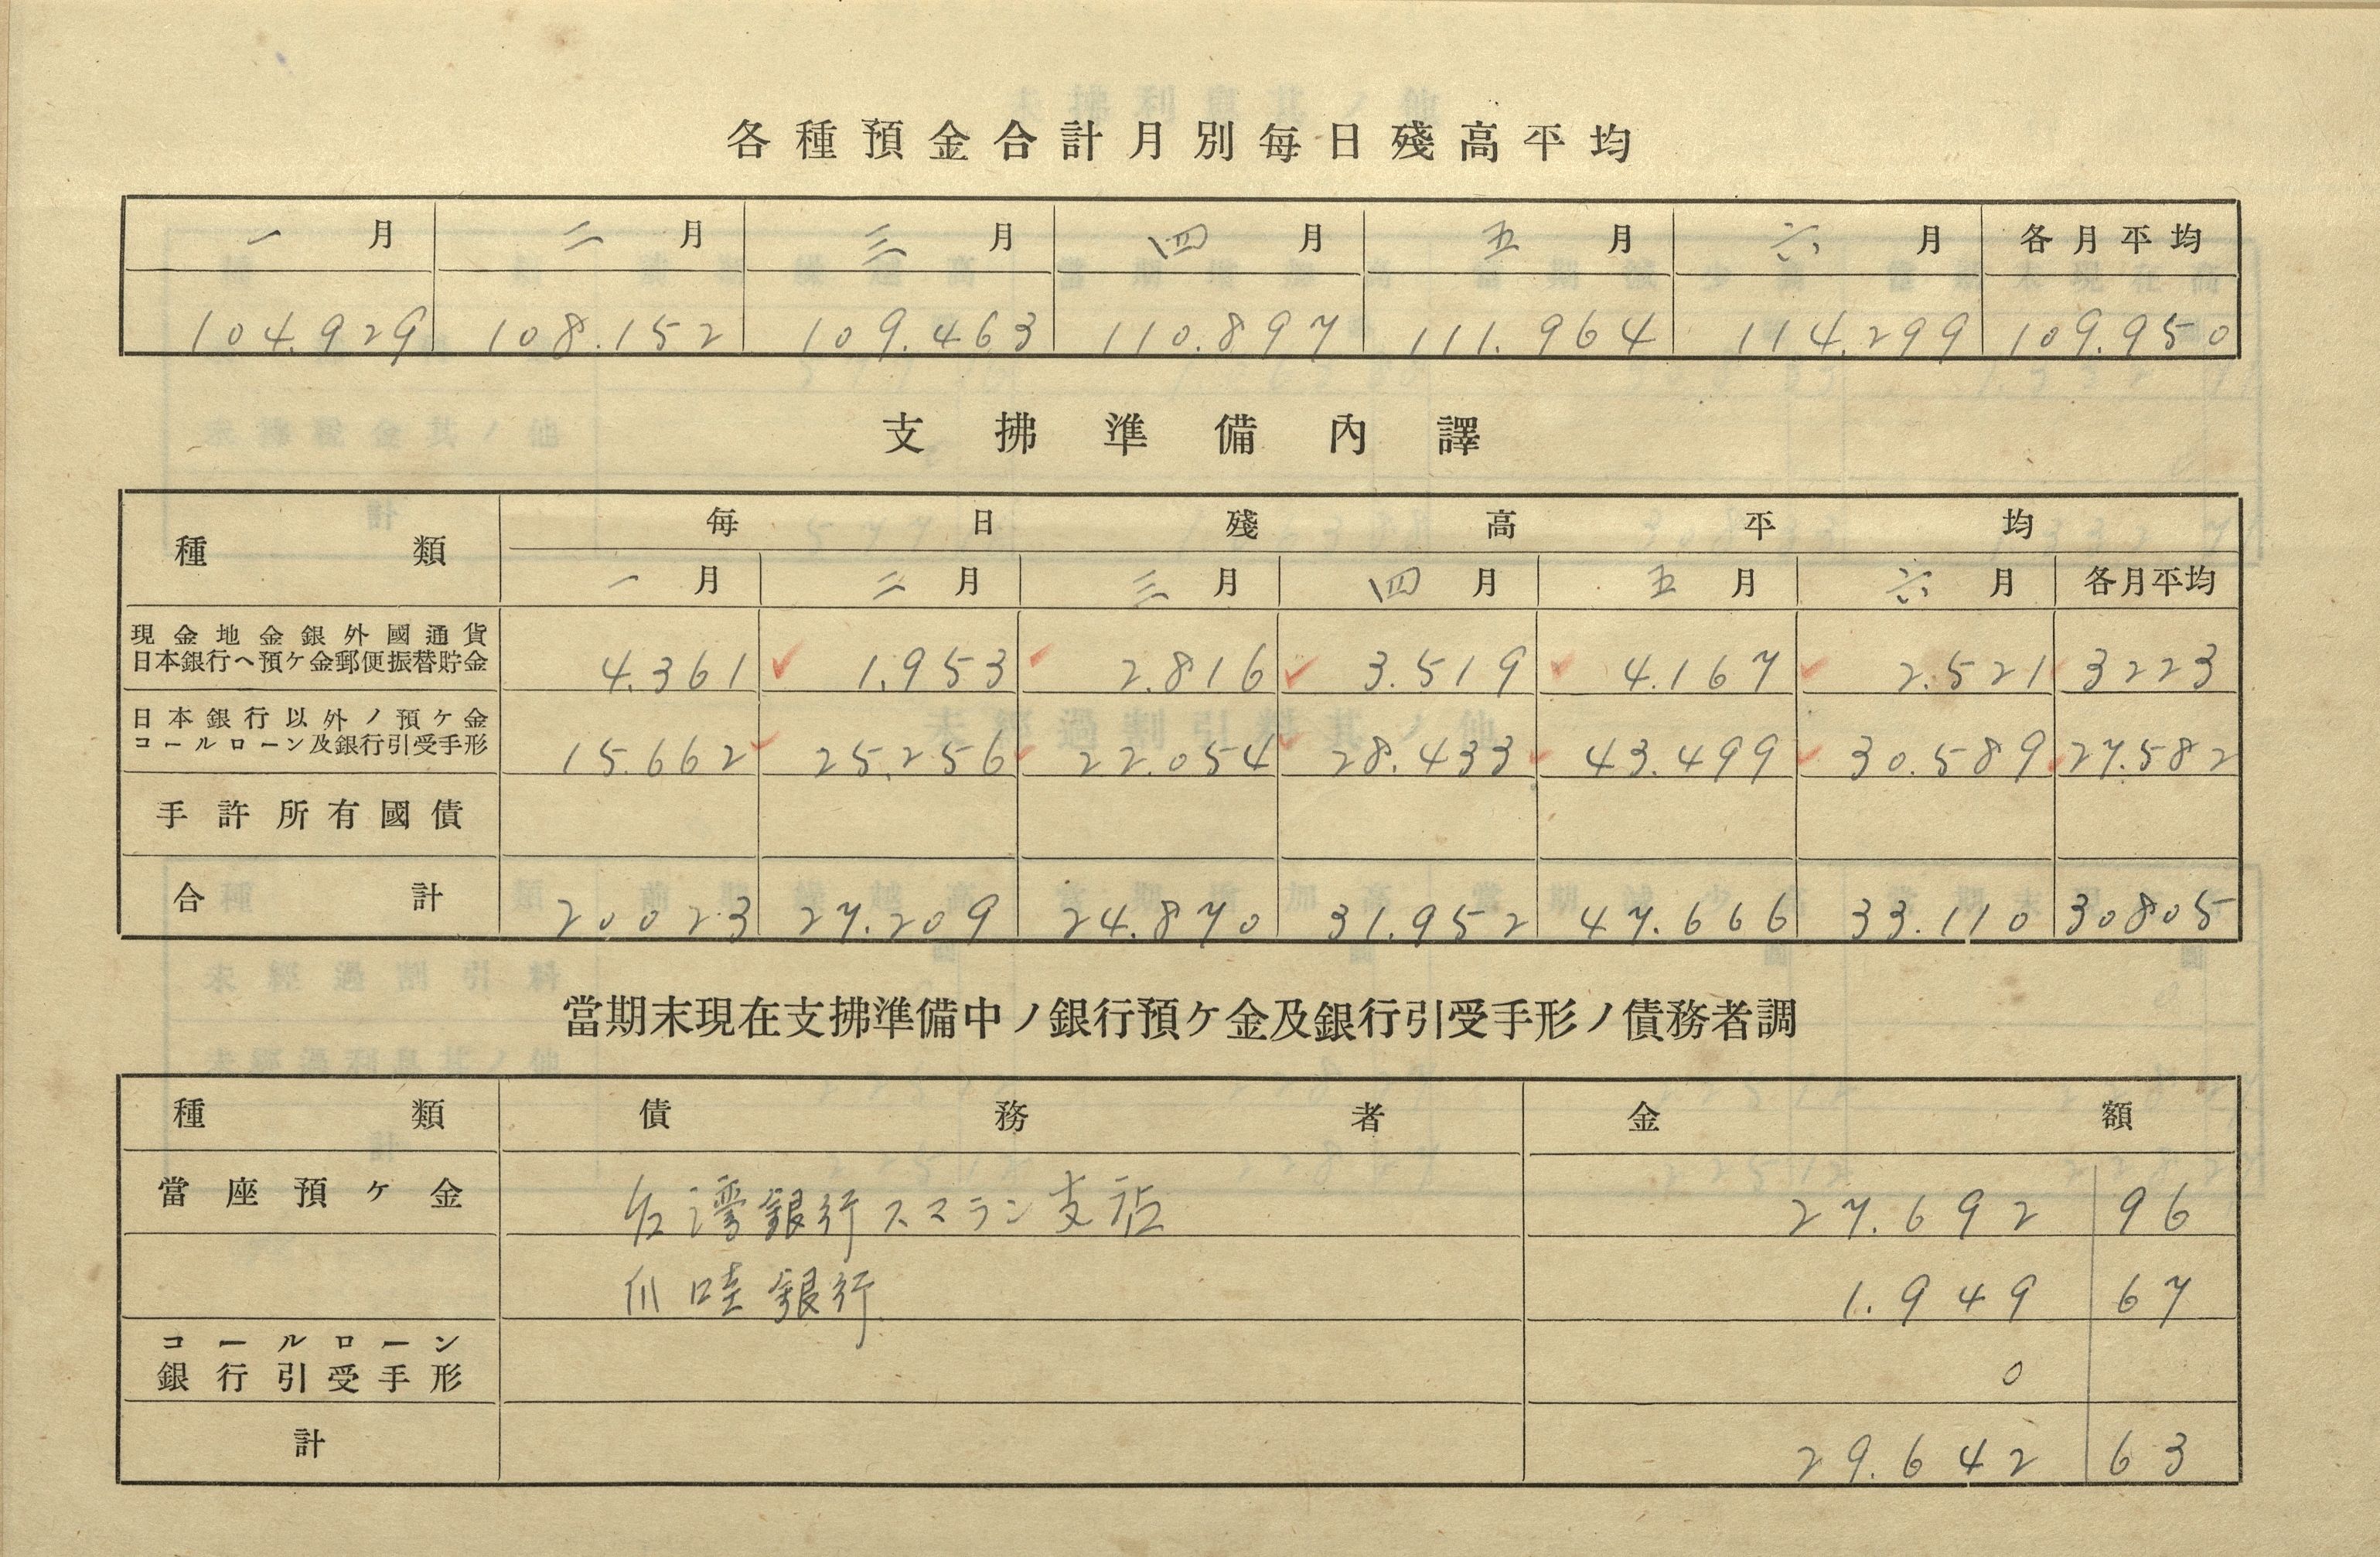 各種預金合計月別每日殘高平均
一月 二月 三月 四月 五月 六月 各月平均
104.929 108.152 109.463 110.897 111.964 114.299 109.950
支拂準備內譯
種類 每日殘高平均
一月 二月 三月 四月 五月 六月 各月平均
現金地金銀外國通貨
日本銀行ヘ預ケ金郵便振替貯金 4.361 1.953 2.816 3.519 4.167 2.521 3223
日本銀行以外ノ預ケ金
コールローン及銀行引受手形 15.662 25.256 22.054 28.433 43.499 30.589 27.582
手許所有國債
合計 20023 27.209 24.870 31.952 47.666 33.110 30805
當期末現在支拂準備中ノ銀行預ケ金及銀行引受手形ノ債務者調
種類 債務者 金額
當座預ケ金 台湾銀行スマラン支店 27.692 96
爪哇銀行 1.949 67
コールローン
銀行引受手形 0
計 29.642 63